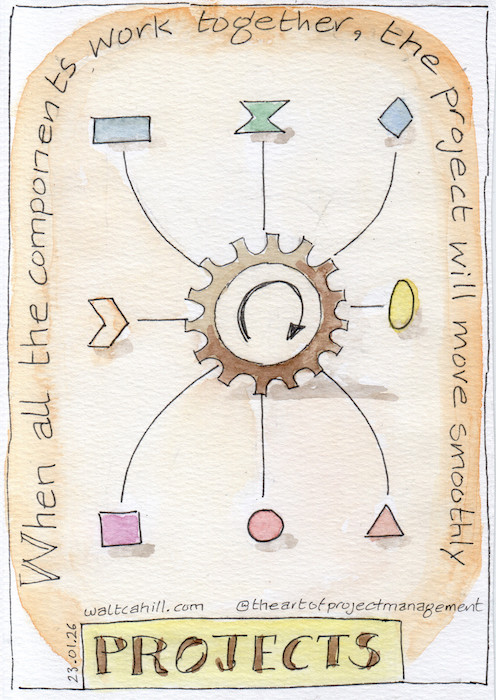 When all the components work together, the project will move smoothly
waltcahill.com @theartofprojectmanagement
23.01.26
PROJECTS